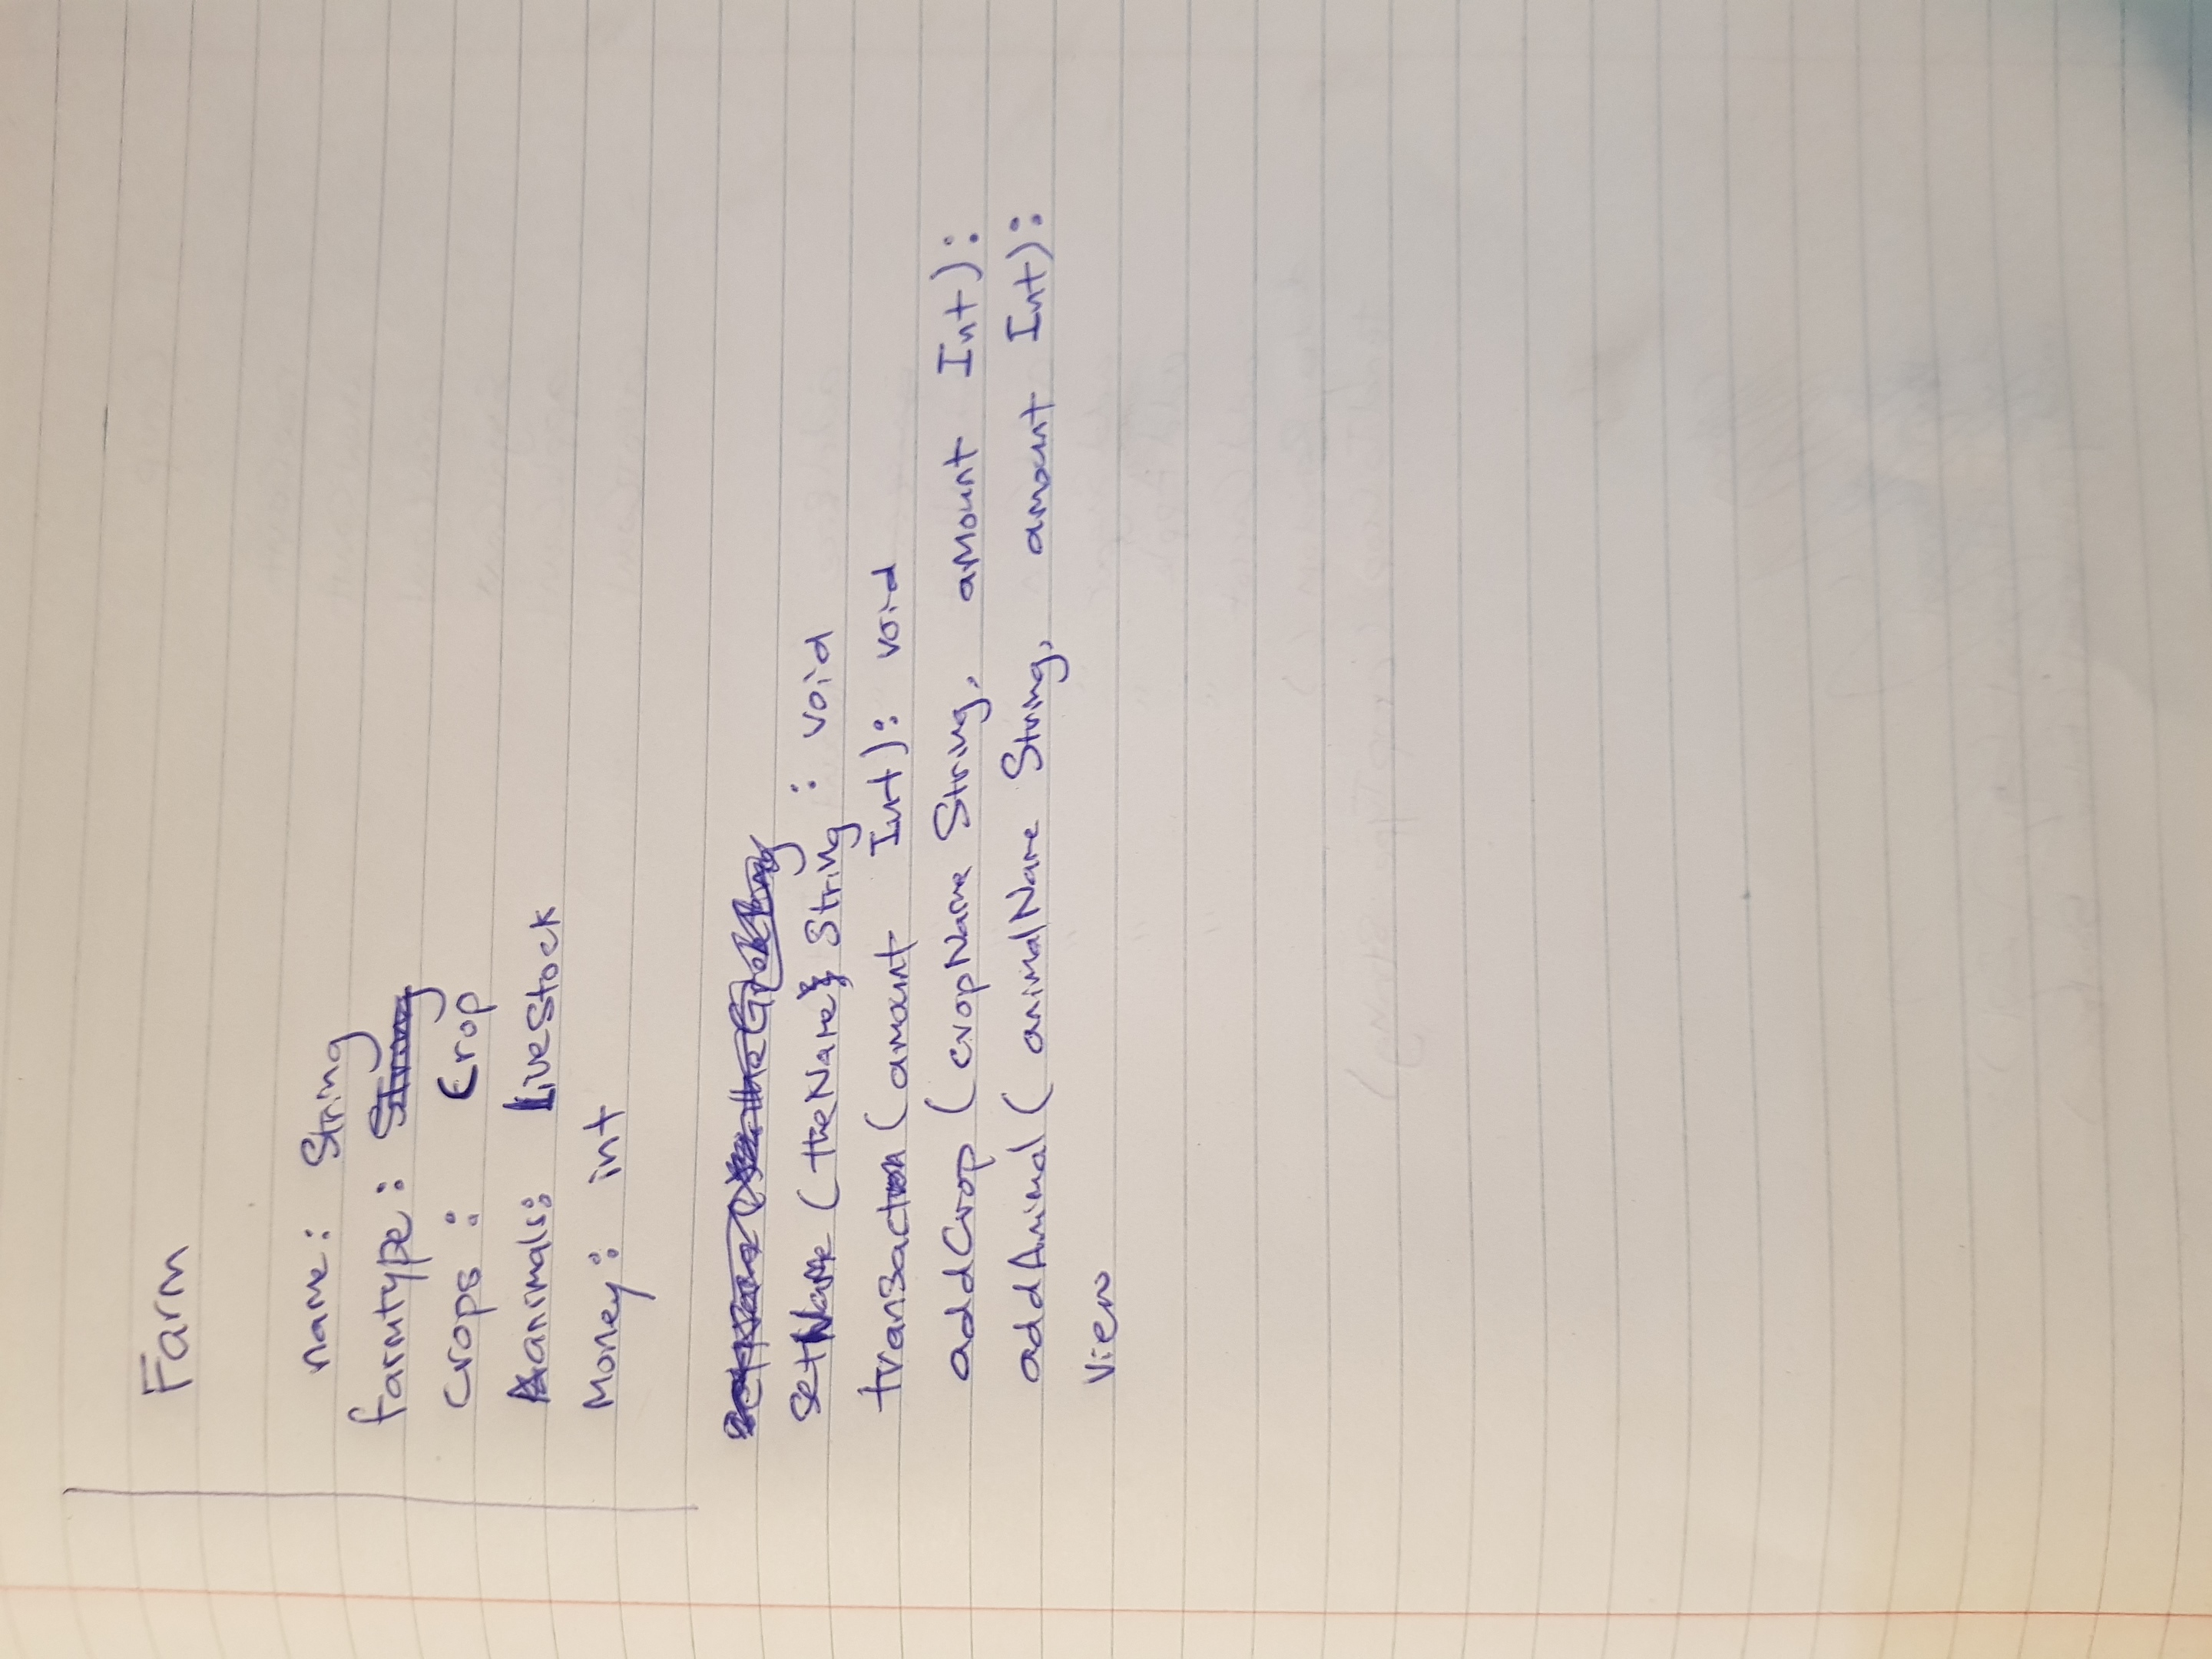 Farm
name: String
farmtype: String
crops: Crop
animals: LiveStock
Money: int
setName (theName} String : void
transaction (amount Int): void
addCrop (cropName String, amount Int):
addAnimal ( animalName String, amount Int):
View